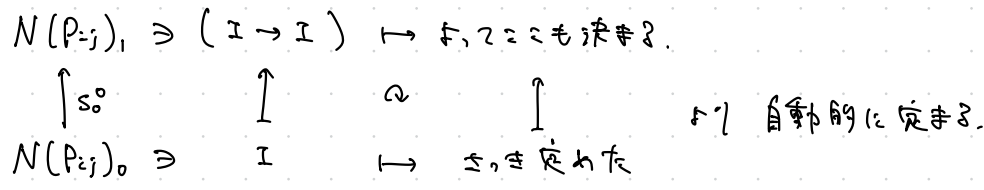 N(P_{ij})_1 ∋ (I → I) ↦ よってここも決まる.
↑ s_0^0 ↥ ↷ ↥ より 自動的に定まる.
N(P_{ij})_0 ∋ I ↦ さっき定めた